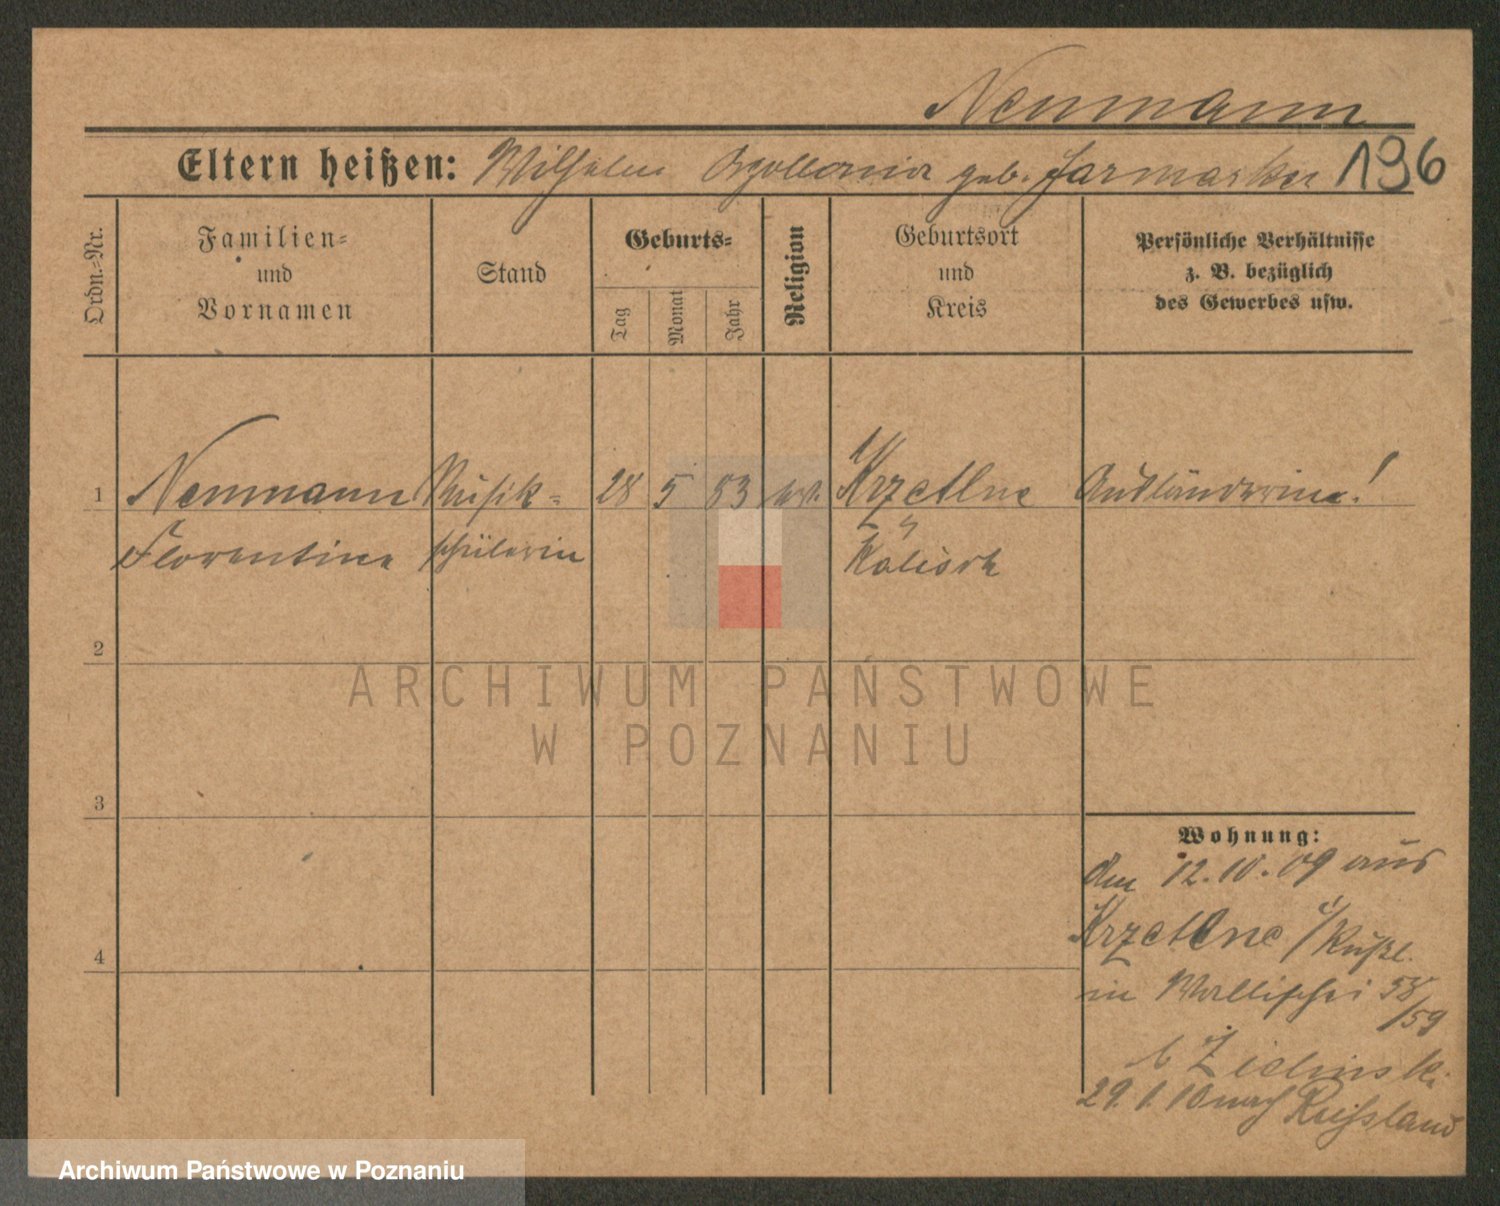 Neumann
Eltern heißen: Wilhelm Apollonia geb. Jarmarker 196
Ordn.-Nr.
Familien-
und
Vornamen
Stand
Geburts-
Tag
Monat
Jahr
Religion
Geburtsort
und
Kreis
Persönliche Verhältnisse
z. B. bezüglich
des Gewerbes usw.
1 Neumann Musik- 28 5 83 Ausländerin!
Florentine schülerin Kalisch
2
ARCHIWUM PAŃSTWOWE
W POZNANIU
3
Wohnung:
den 12.10.09 aus
i/Rußl.
4
in Wallischei 58
/59
b Zielinski
29.1.10 nach Russland
Archiwum Państwowe w Poznaniu